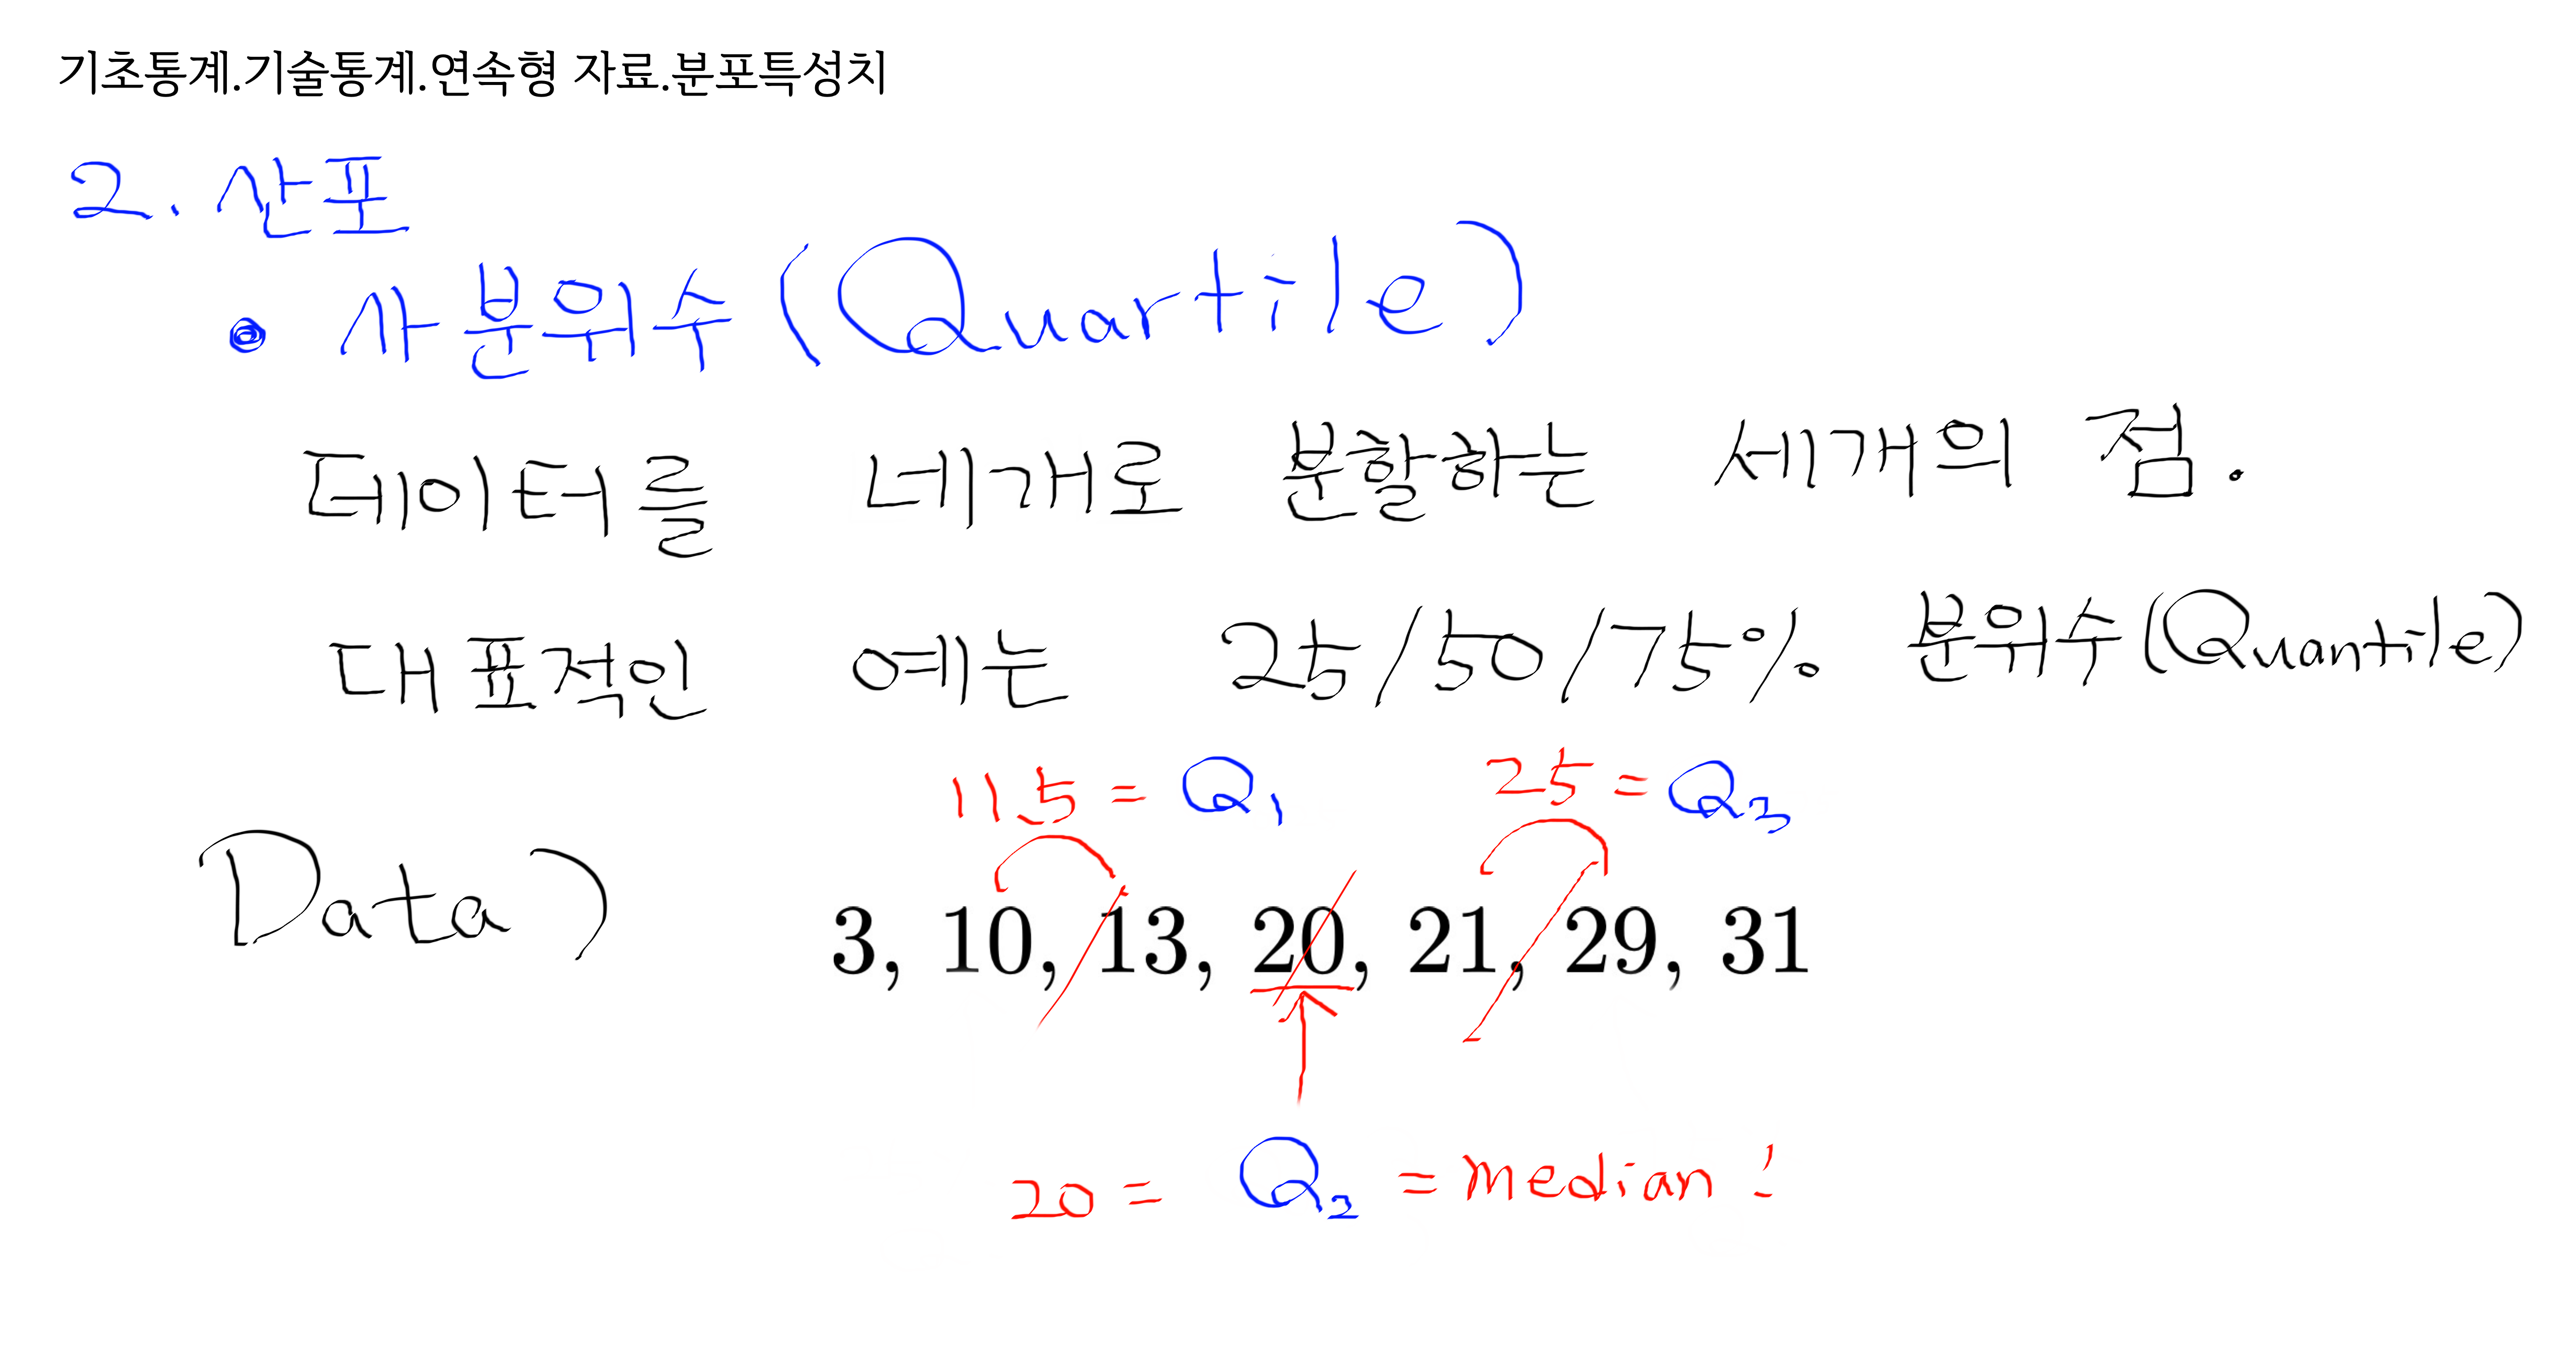 기초통계.기술통계.연속형 자료.분포특성치
2. 산포
• 사분위수(Quartile)
데이터를 네개로 분할하는 세개의 점.
대표적인 예는 25/50/75% 분위수(Quantile)
11.5 = Q₁ 25 = Q₃
Data) 3, 10, 13, 20, 21, 29, 31
20 = Q₂ = median !